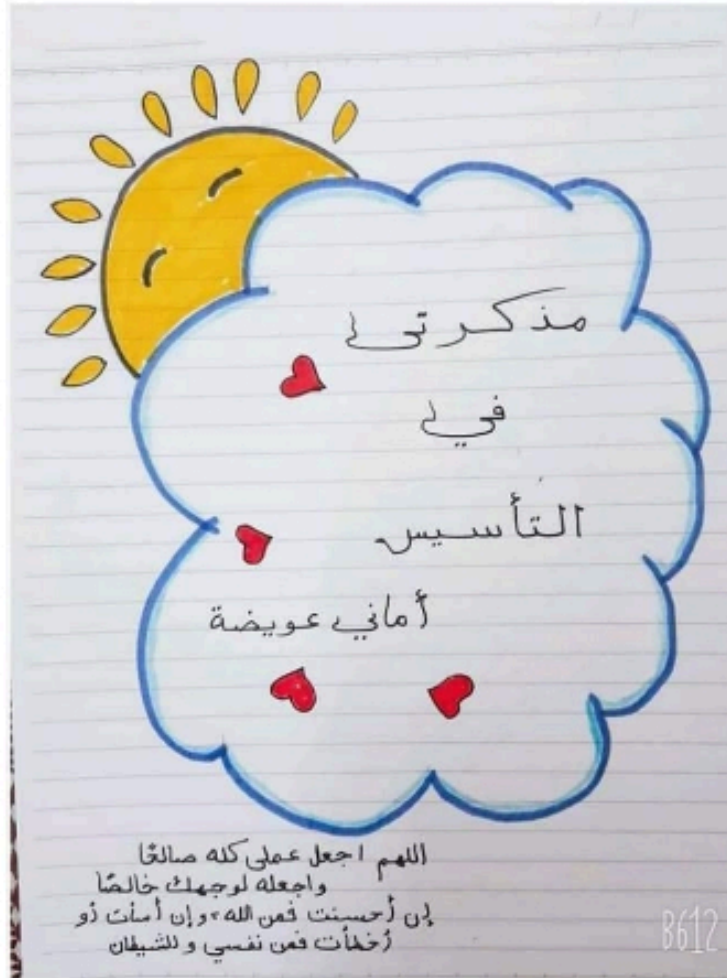 مذكرتي
في
التأسيس
أماني عويضة
اللهم اجعل عملي كله صالحًا
واجعله لوجهك خالصًا
إن أحسنت فمن الله، وإن أسأت أو
أخطأت فمن نفسي وللشيطان
B612